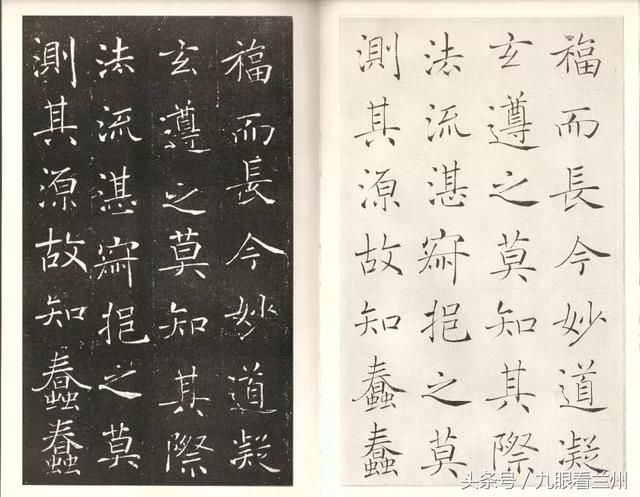 福而長今妙道凝
玄遵之莫知其際
法流湛寂挹之莫
測其源故知蠢蠢
福而長今妙道凝
玄遵之莫知其際
法流湛寂挹之莫
測其源故知蠢蠢
头条号/九眼看兰州